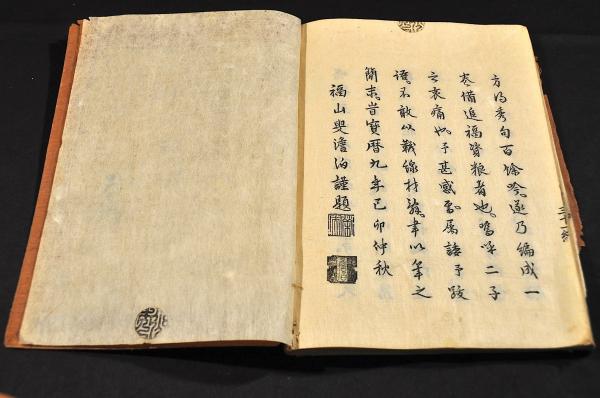 方得秀句百餘吟。遂乃編成一
卷備追福資粮者也。嗚呼二子
之哀痛也。予甚感焉。属請予跋
語。不敢以線材辞。聿以筆之
簡末。旹寶暦九年己卯仲秋
福山叟澹泊謹題